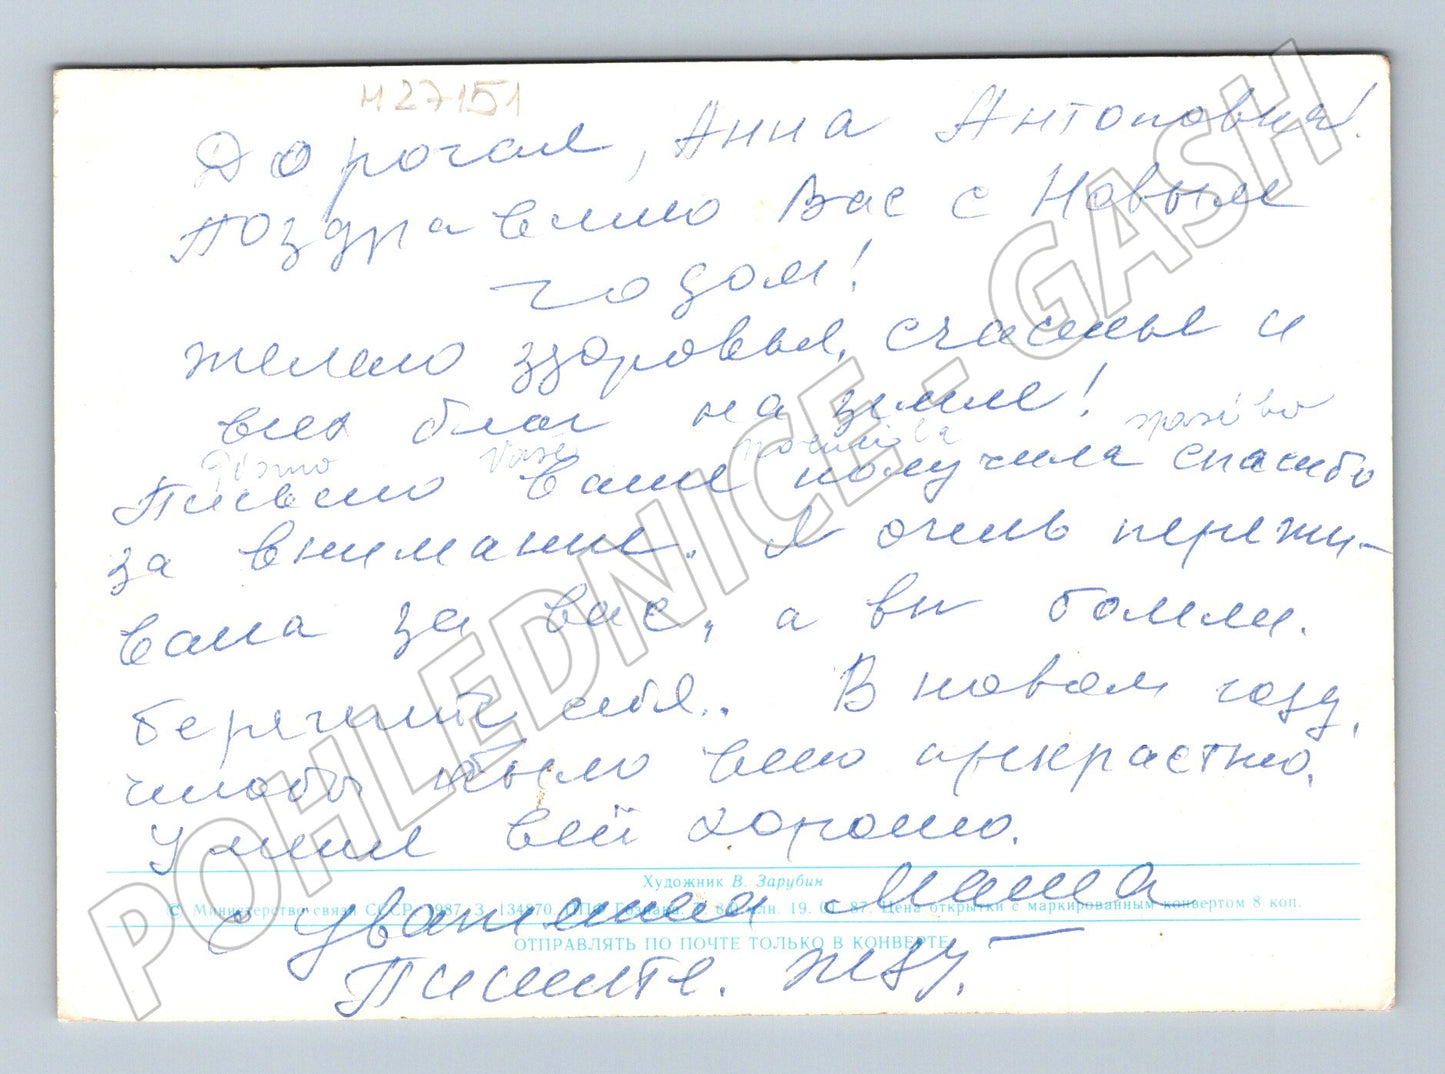 М 27151
Дорогая, Анна Антоновна!
Поздравляю Вас с Новым
годом!
Желаю здоровья, счастье и
всех благ на земле!
Письмо Ваше получила спасибо
за внимание. Я очень пережи-
вала за вас, а вы болели.
Берегите себя. В новом году,
чтобы было всё прекрастно.
У меня всё хорошо.
Художник В. Зарубин
© Министерство связи СССР. 1987. З. 134870. ППФ Гознака. 19. 01. 87. Цена открытки с маркированным конвертом 8 коп.
с уважением
ОТПРАВЛЯТЬ ПО ПОЧТЕ ТОЛЬКО В КОНВЕРТЕ
Пишите. Жду.
POHLEDNICE - GASH